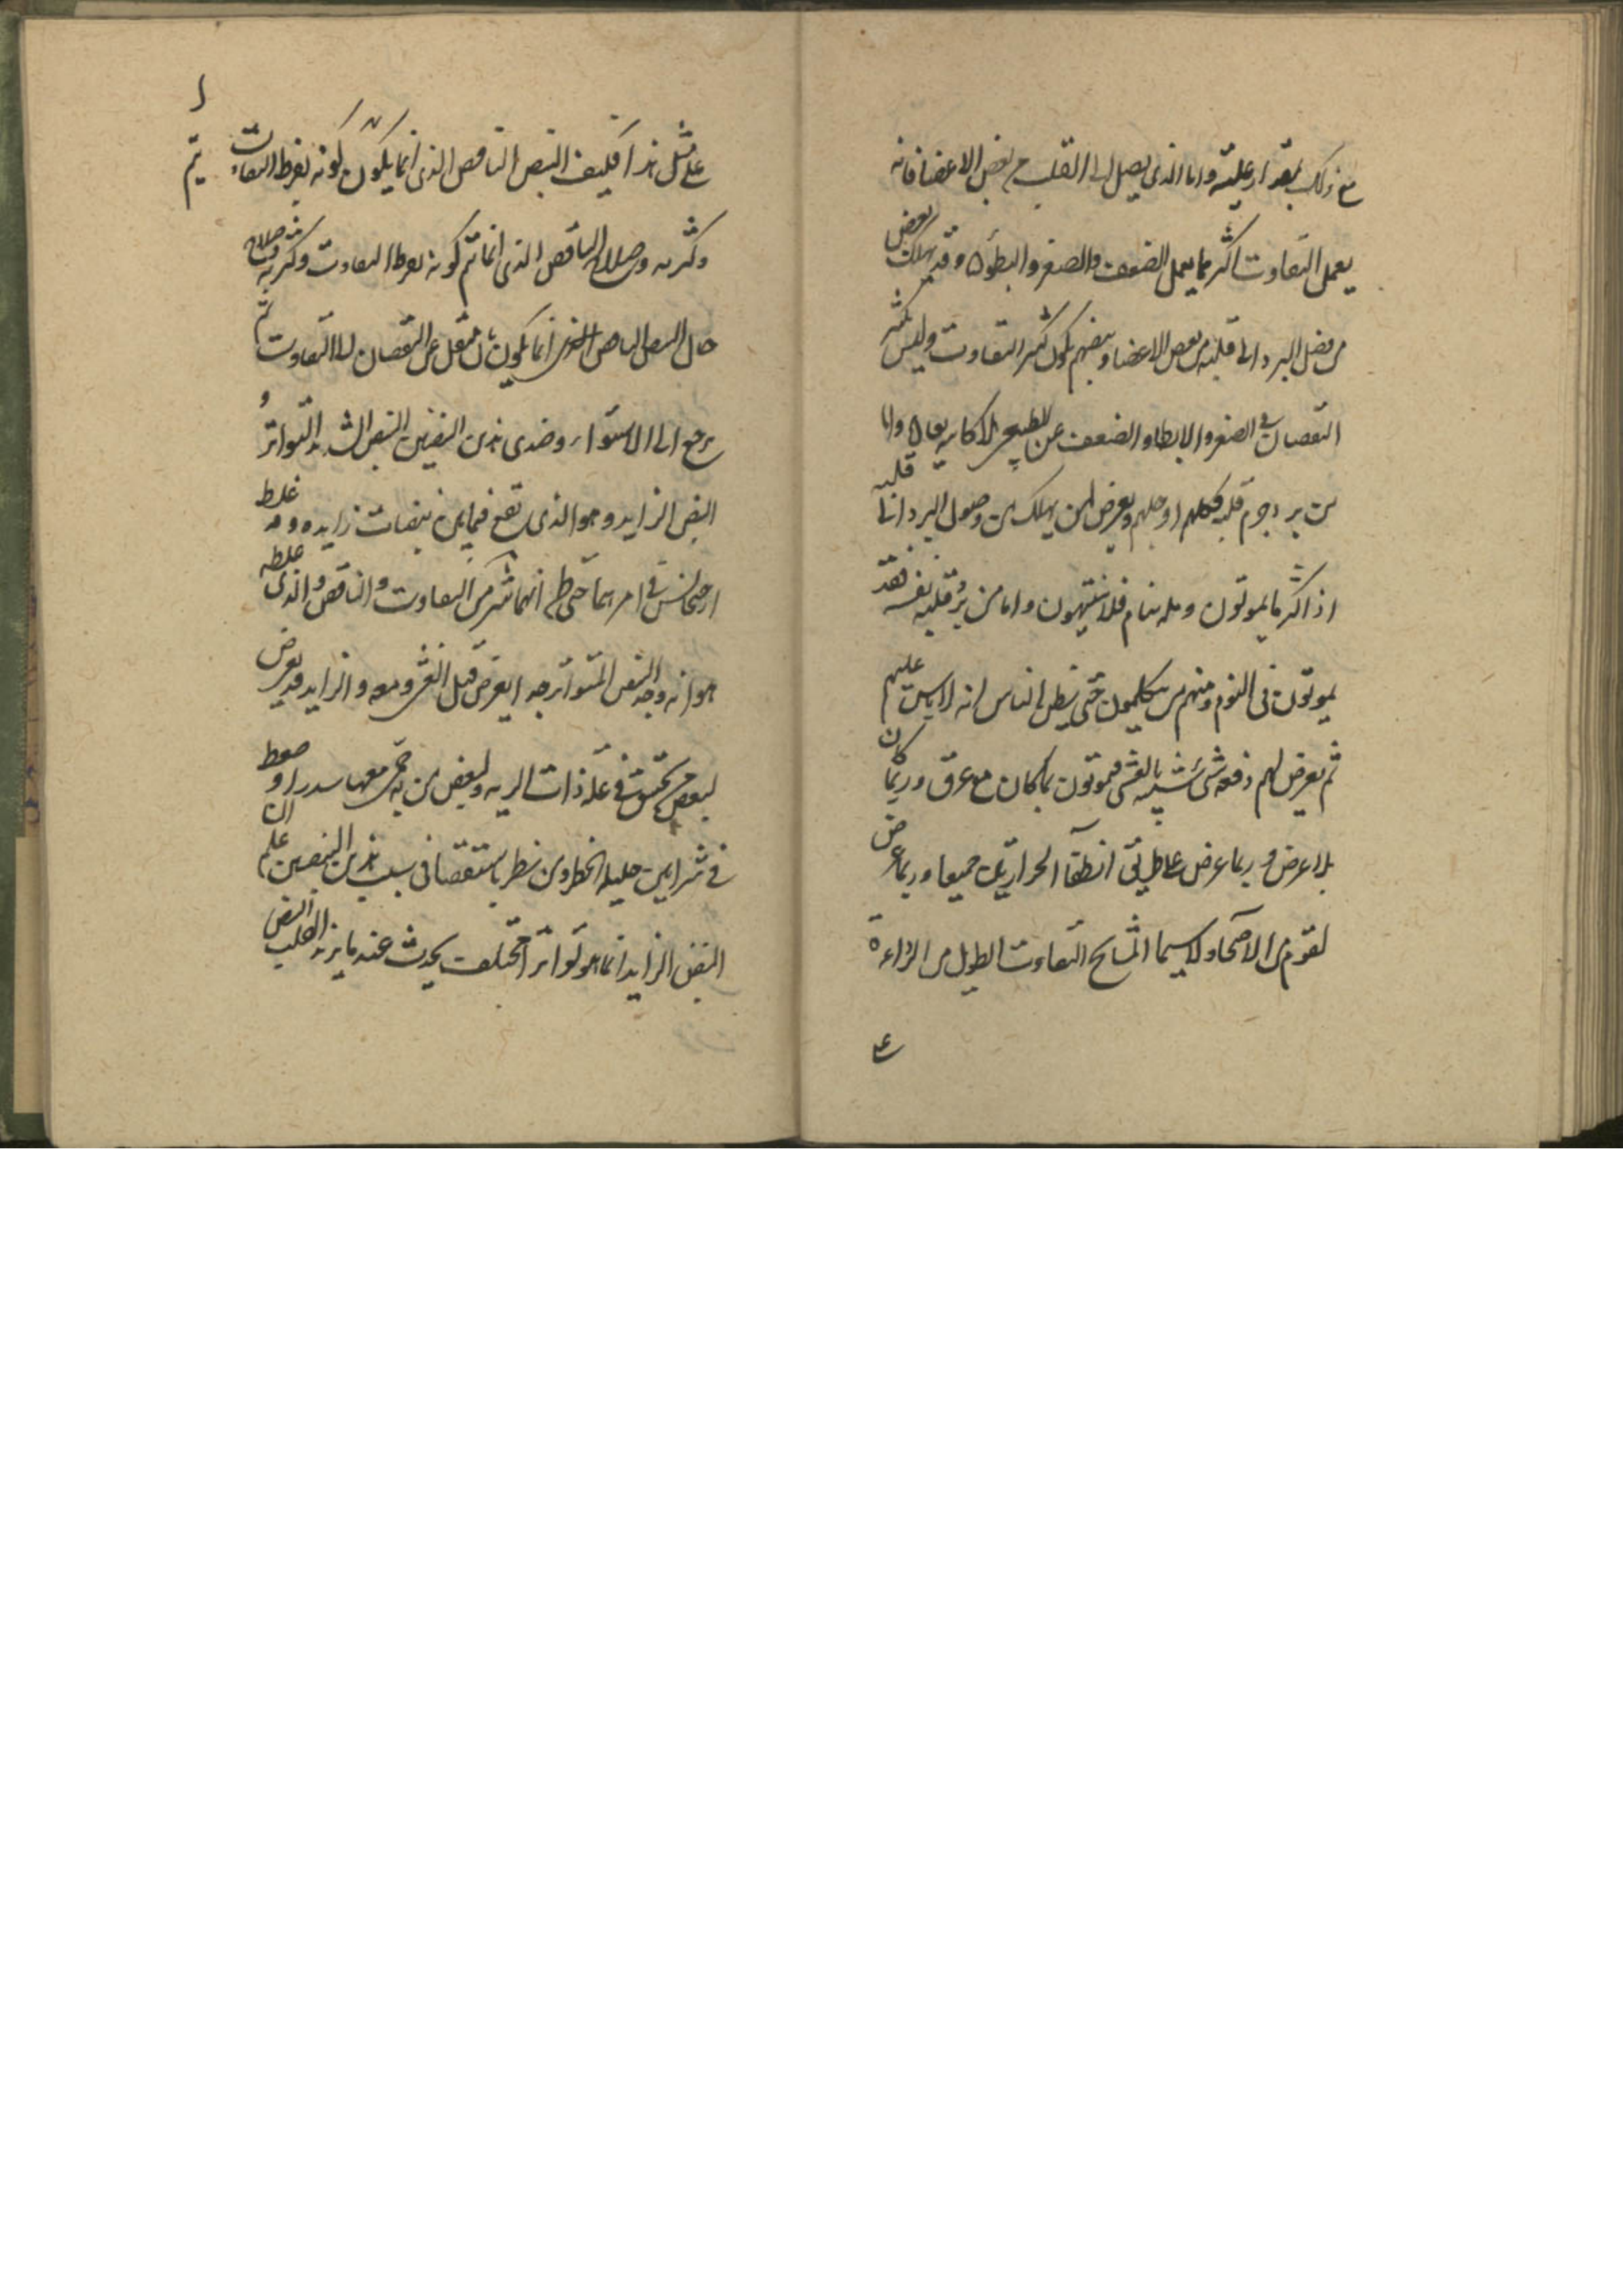 مع ذلك بمقدار غلبته واما الذى يصل الى القلب من بعض الاعضا فانه
يعمل التفاوت اكثر مما يعمل الضعف والصغر والبطؤ وقد يهلك بعض
من فضل البرد الى قلبه من بعض الاعضا وبعضهم يكون كثير التفاوت وليس بكثير
النقصان فى الصغر والابطا والضعف عن الطبيعى واما
من برد جرم قلبه فكلهم او جلهم ويعرض لمن يهلك من وصول البرد الى قلبه
اذ اكثر ما يموتون وهم نيام فلا ينتبهون واما من برد قلبه نفسه فقد
يموتون فى النوم ومنهم من يتكلمون حتى يظن الناس انه لا باس عليهم
ثم يعرض لهم دفعة شى شبيه بالغشى فيموتون كان مع عرق وربما كان
بلا عرض وربما عرض انطفا الحرارة جميعا وربما عرض
لقوم من الاصحا ولا سيما المشايخ التفاوت الطويل من الرداءة
على مثل هذا فكيف النبض الناقص الذى انما يكون كونه بفرط التفاوت ثم
وكثرته وصلاح الناقص الذى انما تم كونه بفرط التفاوت وكثرته وصلاح
حال النبض الناقص الذى انما يكون بان ينتقل عن النقصان الى التفاوت ثم
يرجع الى الاستواء وضدى هذين النبضين النبض الشديد التواتر و
النبض الزايد وهو الذى تقع فيما بين نبضات زايدة وقد غلط
ارخيجانس فى امرهما حتى ظن انهما شر من التفاوت والناقص والذى غلطه
هو انه وجد النبض المتواتر جدا يعرض قبل الغشى ومعه والزايد قد يعرض
لبعض من يختنق فى علة ذات الرية ولبعض من به حمى معها سدد او ضغط
فى شرايين جليلة الخطر ومن نظر باستقصا فى سبب هذين النبضين علم ان
النبض الزايد انما هو تواتر مختلف يحدث عند ما يزيد القلب النبض